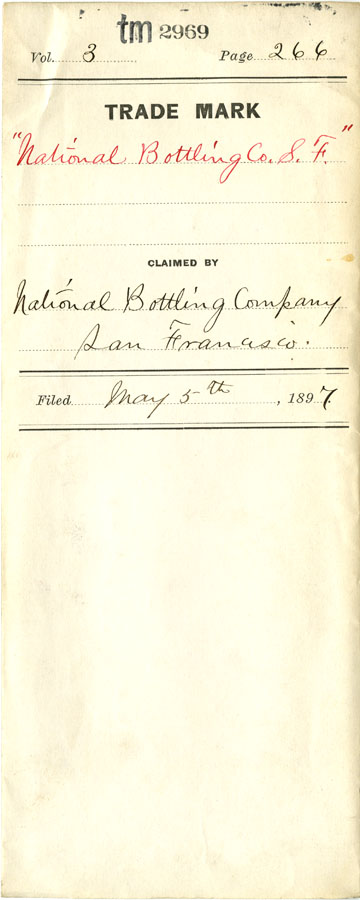 tm 2969
Vol. 3 Page 266
TRADE MARK
"National Bottling Co. S. F."
CLAIMED BY
National Bottling Company
San Francisco.
Filed May 5th, 1897.